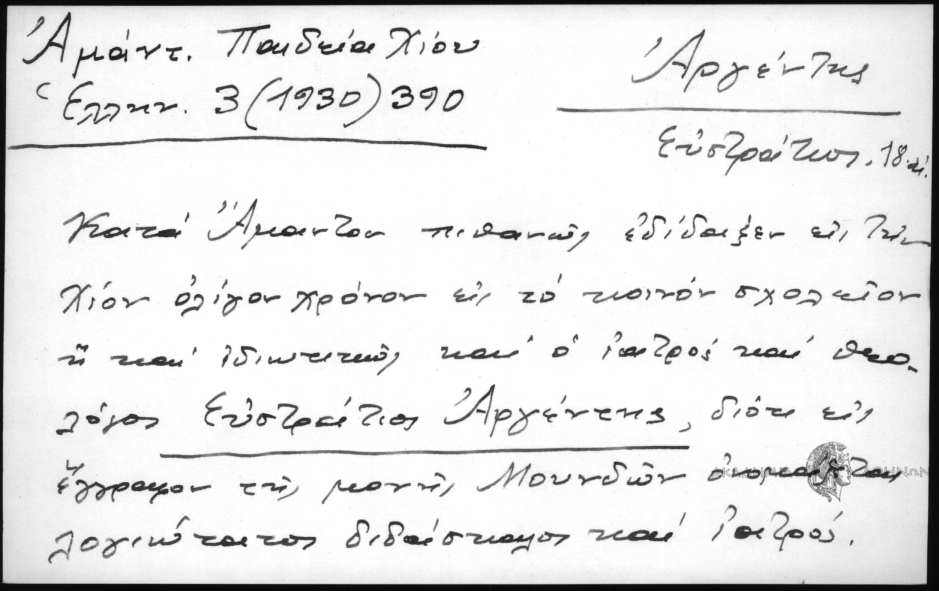 Ἀμάντ. Παιδεία Χίου
Ἑλλην. 3 (1930) 390
Ἀργέντης
Εὐστράτιος. 18 αἰ.
Κατά Ἄμαντον πιθανῶς ἐδίδαξεν εἰς τήν
Χίον ὀλίγον χρόνον εἰς τό κοινόν σχολεῖον
ἤ καί ἰδιωτικῶς καί ὁ ἰατρός καί θεο-
λόγος Εὐστράτιος Ἀργέντης, διότι εἰς
ἔγγραφον τῆς μονῆς Μουνδῶν ὀνομάζεται
λογιώτατος διδάσκαλος καί ἰατρός.